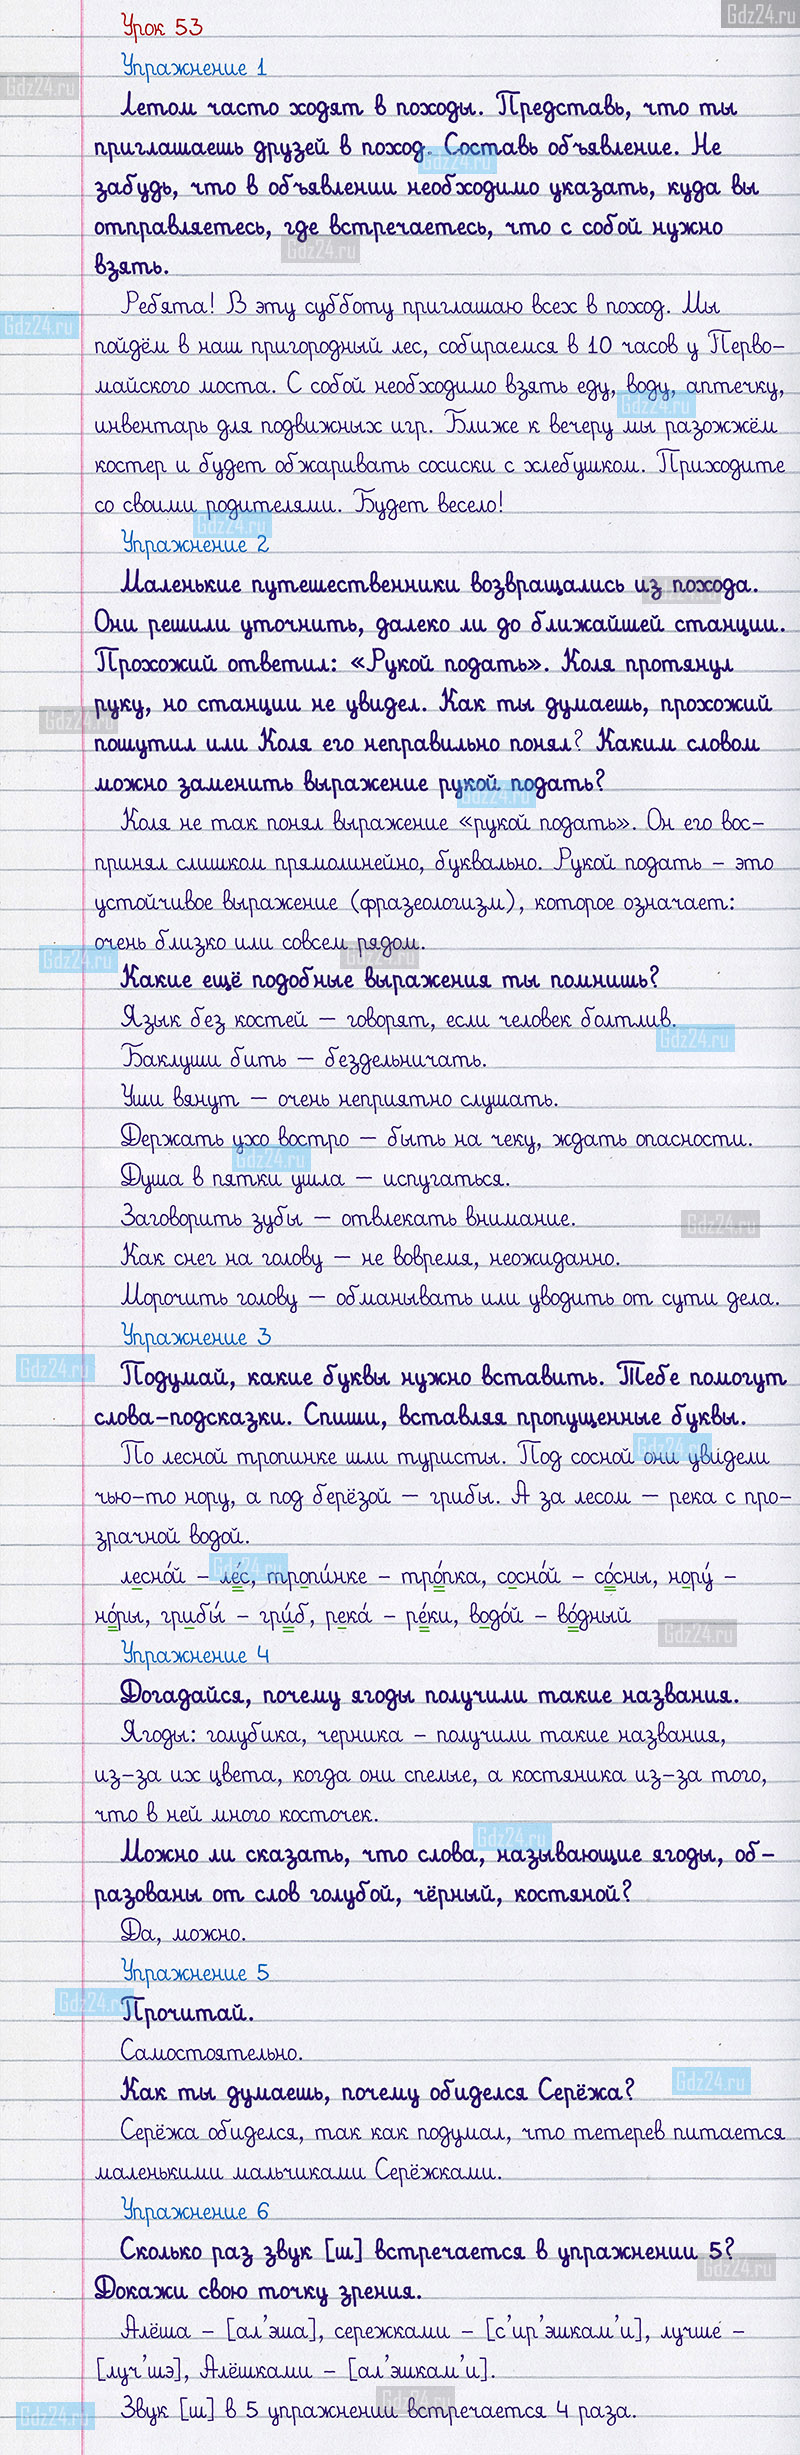 Урок 53
Упражнение 1
Летом часто ходят в походы. Представь, что ты
приглашаешь друзей в поход. Составь объявление. Не
забудь, что в объявлении необходимо указать, куда вы
отправляетесь, где встречаетесь, что с собой нужно
взять.
Ребята! В эту субботу приглашаю всех в поход. Мы
пойдём в наш пригородный лес, собираемся в 10 часов у Перво-
майского моста. С собой необходимо взять еду, воду, аптечку,
инвентарь для подвижных игр. Ближе к вечеру мы разожжём
костер и будет обжаривать сосиски с хлебушком. Приходите
со своими родителями. Будет весело!
Упражнение 2
Маленькие путешественники возвращались из похода.
Они решили уточнить, далеко ли до ближайшей станции.
Прохожий ответил: «Рукой подать». Коля протянул
руку, но станции не увидел. Как ты думаешь, прохожий
пошутил или Коля его неправильно понял? Каким словом
можно заменить выражение рукой подать?
Коля не так понял выражение «рукой подать». Он его вос-
принял слишком прямолинейно, буквально. Рукой подать – это
устойчивое выражение (фразеологизм), которое означает:
очень близко или совсем рядом.
Какие ещё подобные выражения ты помнишь?
Язык без костей — говорят, если человек болтлив.
Баклуши бить — бездельничать.
Уши вянут — очень неприятно слушать.
Держать ухо востро — быть на чеку, ждать опасности.
Душа в пятки ушла — испугаться.
Заговорить зубы — отвлекать внимание.
Как снег на голову — не вовремя, неожиданно.
Морочить голову — обманывать или уводить от сути дела.
Упражнение 3
Подумай, какие буквы нужно вставить. Тебе помогут
слова-подсказки. Спиши, вставляя пропущенные буквы.
По лесной тропинке шли туристы. Под сосной они увидели
чью-то нору, а под берёзой — грибы. А за лесом — река с про-
зрачной водой.
лесно́й – ле́с, тропи́нке – тро́пка, сосно́й – со́сны, нору́ –
но́ры, грибы́ – гри́б, река́ – ре́ки, водо́й – во́дный
Упражнение 4
Догадайся, почему ягоды получили такие названия.
Ягоды: голубика, черника – получили такие названия,
из-за их цвета, когда они спелые, а костяника из-за того,
что в ней много косточек.
Можно ли сказать, что слова, называющие ягоды, об-
разованы от слов голубой, чёрный, костяной?
Да, можно.
Упражнение 5
Прочитай.
Самостоятельно.
Как ты думаешь, почему обиделся Серёжа?
Серёжа обиделся, так как подумал, что тетерев питается
маленькими мальчиками Серёжками.
Упражнение 6
Сколько раз звук [ш] встречается в упражнении 5?
Докажи свою точку зрения.
Алёша – [ал'эша], сережками – [с'ир'эшкам'и], лучше –
[луч'шэ], Алёшками – [ал'эшкам'и].
Звук [ш] в 5 упражнении встречается 4 раза.